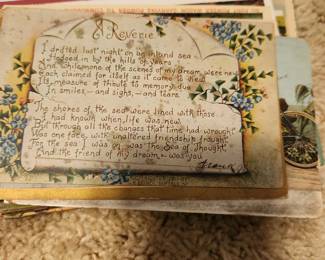 A Reverie
I drifted last night on an inland sea
bosomed in by the hills of years
And while none of the scenes of my dream were new
Each claimed for itself as it came to view
Its measure of tribute to memory due
In smiles—and sighs—and tears
The shores of the sea were lined with those
I had known when life was new
But through all the changes that time had wrought
Was one face, with unaltered friendship fraught
For the sea I was on was the Sea of Thought
And the friend of my dream—was you